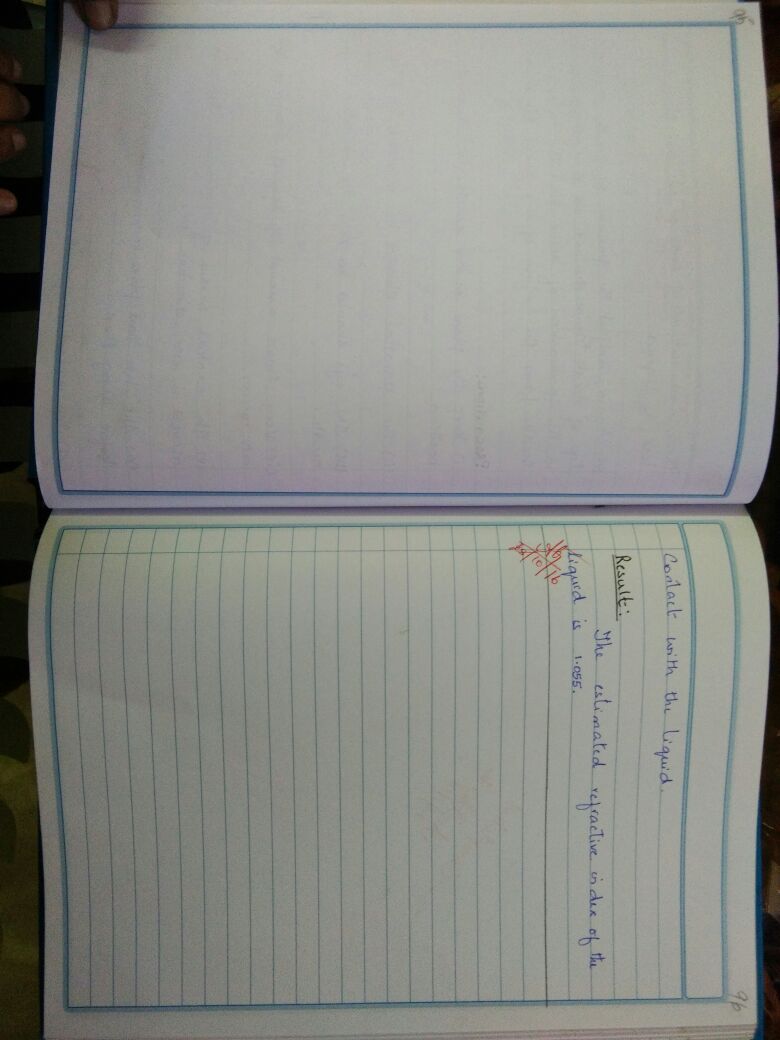 96
Contact with the liquid.
Result:
The estimated refractive index of the
liquid is 1.055.